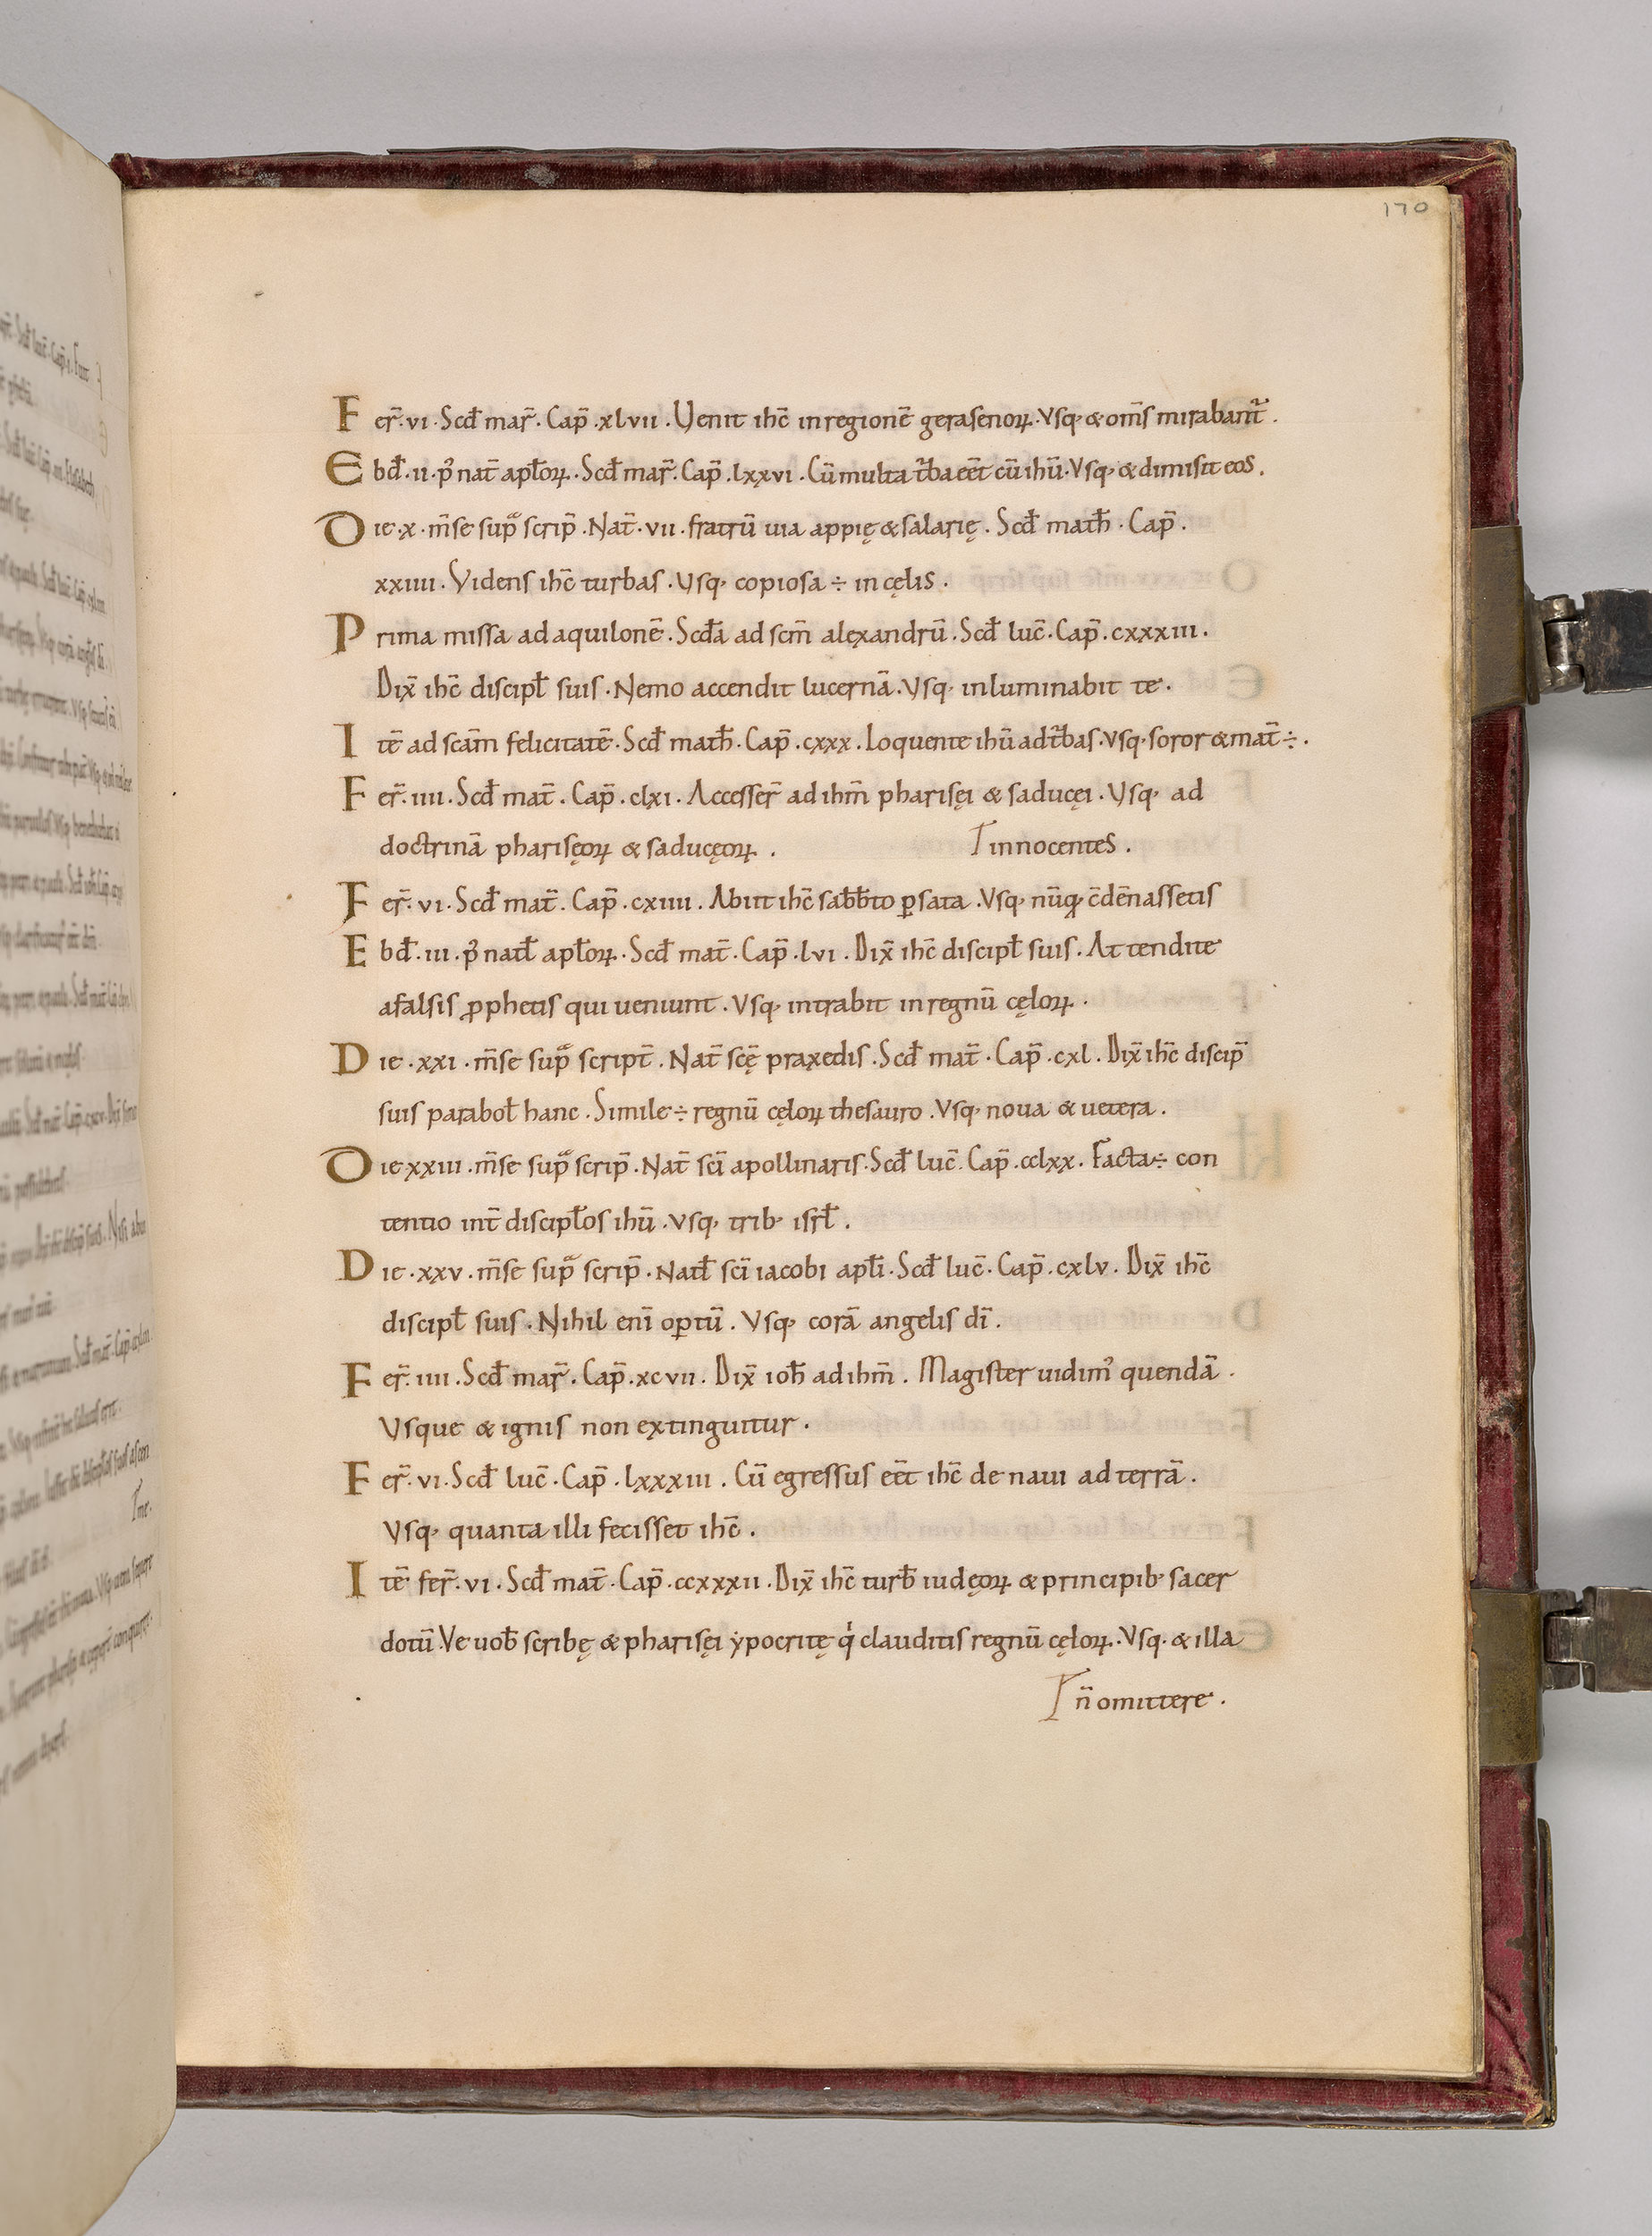 170
Fer̄. vi. Scđ mar̄. Cap̄. xlvii. Uenit ihc̄ in regionē gerasenoꝝ. Vsq; & om̄s mirabant̄.
Ebđ. ii. p̕ nat̄ apłoꝝ. Scđ mar̄. Cap̄. lxxvi. Cū multa t̄ba eēt cū ihū. Vsq; & dimisit eos.
Die. x. m̄se sup̄ scrip̄. Nat̄. vii. fratrū uia appię & salarię. Scđ math̄. Cap̄.
xxiiii. Videns ihc̄ turbas. Vsq; copiosa ÷ in cęlis.
Prima missa ad aquilonē. Scđa ad scm̄ alexandrū. Scđ luc̄. Cap̄. cxxxiii.
Dix̄ ihc̄ discipł suis. Nemo accendit lucernā. Vsq; inluminabit te.
Itē ad scām felicitatē. Scđ math̄. Cap̄. cxxx. Loquente ihū ad t̄bas. Vsq; soror & mat̄ ÷.
Fer̄. iiii. Scđ mat̄. Cap̄. clxi. Accesser̄ ad ihm̄ pharisęi & saducęi. Vsq; ad
doctrinā pharisęoꝝ & saducęoꝝ. innocentes.
Fer̄. vi. Scđ mat̄. Cap̄. cxiiii. Abiit ihc̄ sabb̄to ꝑ sata. Vsq; nūq̄ c̄dēnassetis
Ebđ. iii. p̕ natł apłoꝝ. Scđ mat̄. Cap̄. lvi. Dix̄ ihc̄ discipł suis. Attendite
a falsis ꝓphetis qui ueniunt. Vsq; intrabit in regnū cęloꝝ.
Die. xxi. m̄se sup̄ script̄. Nat̄ scę̄ praxedis. Scđ mat̄. Cap̄. cxl. Dix̄ ihc̄ discip̄
suis parabol̄ hanc. Simile ÷ regnū cęloꝝ thesauro. Vsq; noua & uetera.
Die xxiii. m̄se sup̄ scrip̄. Nat̄ scī apollinaris. Scđ luc̄. Cap̄. cclxx. Facta ÷ con
tentio int̄ discipłos ihū. Vsq; trib; isrł.
Die. xxv. m̄se sup̄ scrip̄. Natł scī iacobi apłi. Scđ luc̄. Cap̄. cxlv. Dix̄ ihc̄
discipł suis. Nihil enī optū. Vsq; corā angelis dī.
Fer̄. iiii. Scđ mar̄. Cap̄. xcvii. Dix̄ ioh̄ ad ihm̄. Magister uidim̕ quendā.
Vsque & ignis non extinguitur.
Fer̄. vi. Scđ luc̄. Cap̄. lxxxiii. Cū egressus eēt ihc̄ de naui ad terrā.
Vsq; quanta illi fecisset ihc̄.
Itē fer̄. vi. Scđ mat̄. Cap̄. ccxxxii. Dix̄ ihc̄ turb̄ iudęoꝝ & principib; sacer
dotū. Ve uob̄ scribę & pharisęi ypocritę q̇ clauditis regnū cęloꝝ. Vsq; & illa
n̄ omittere.